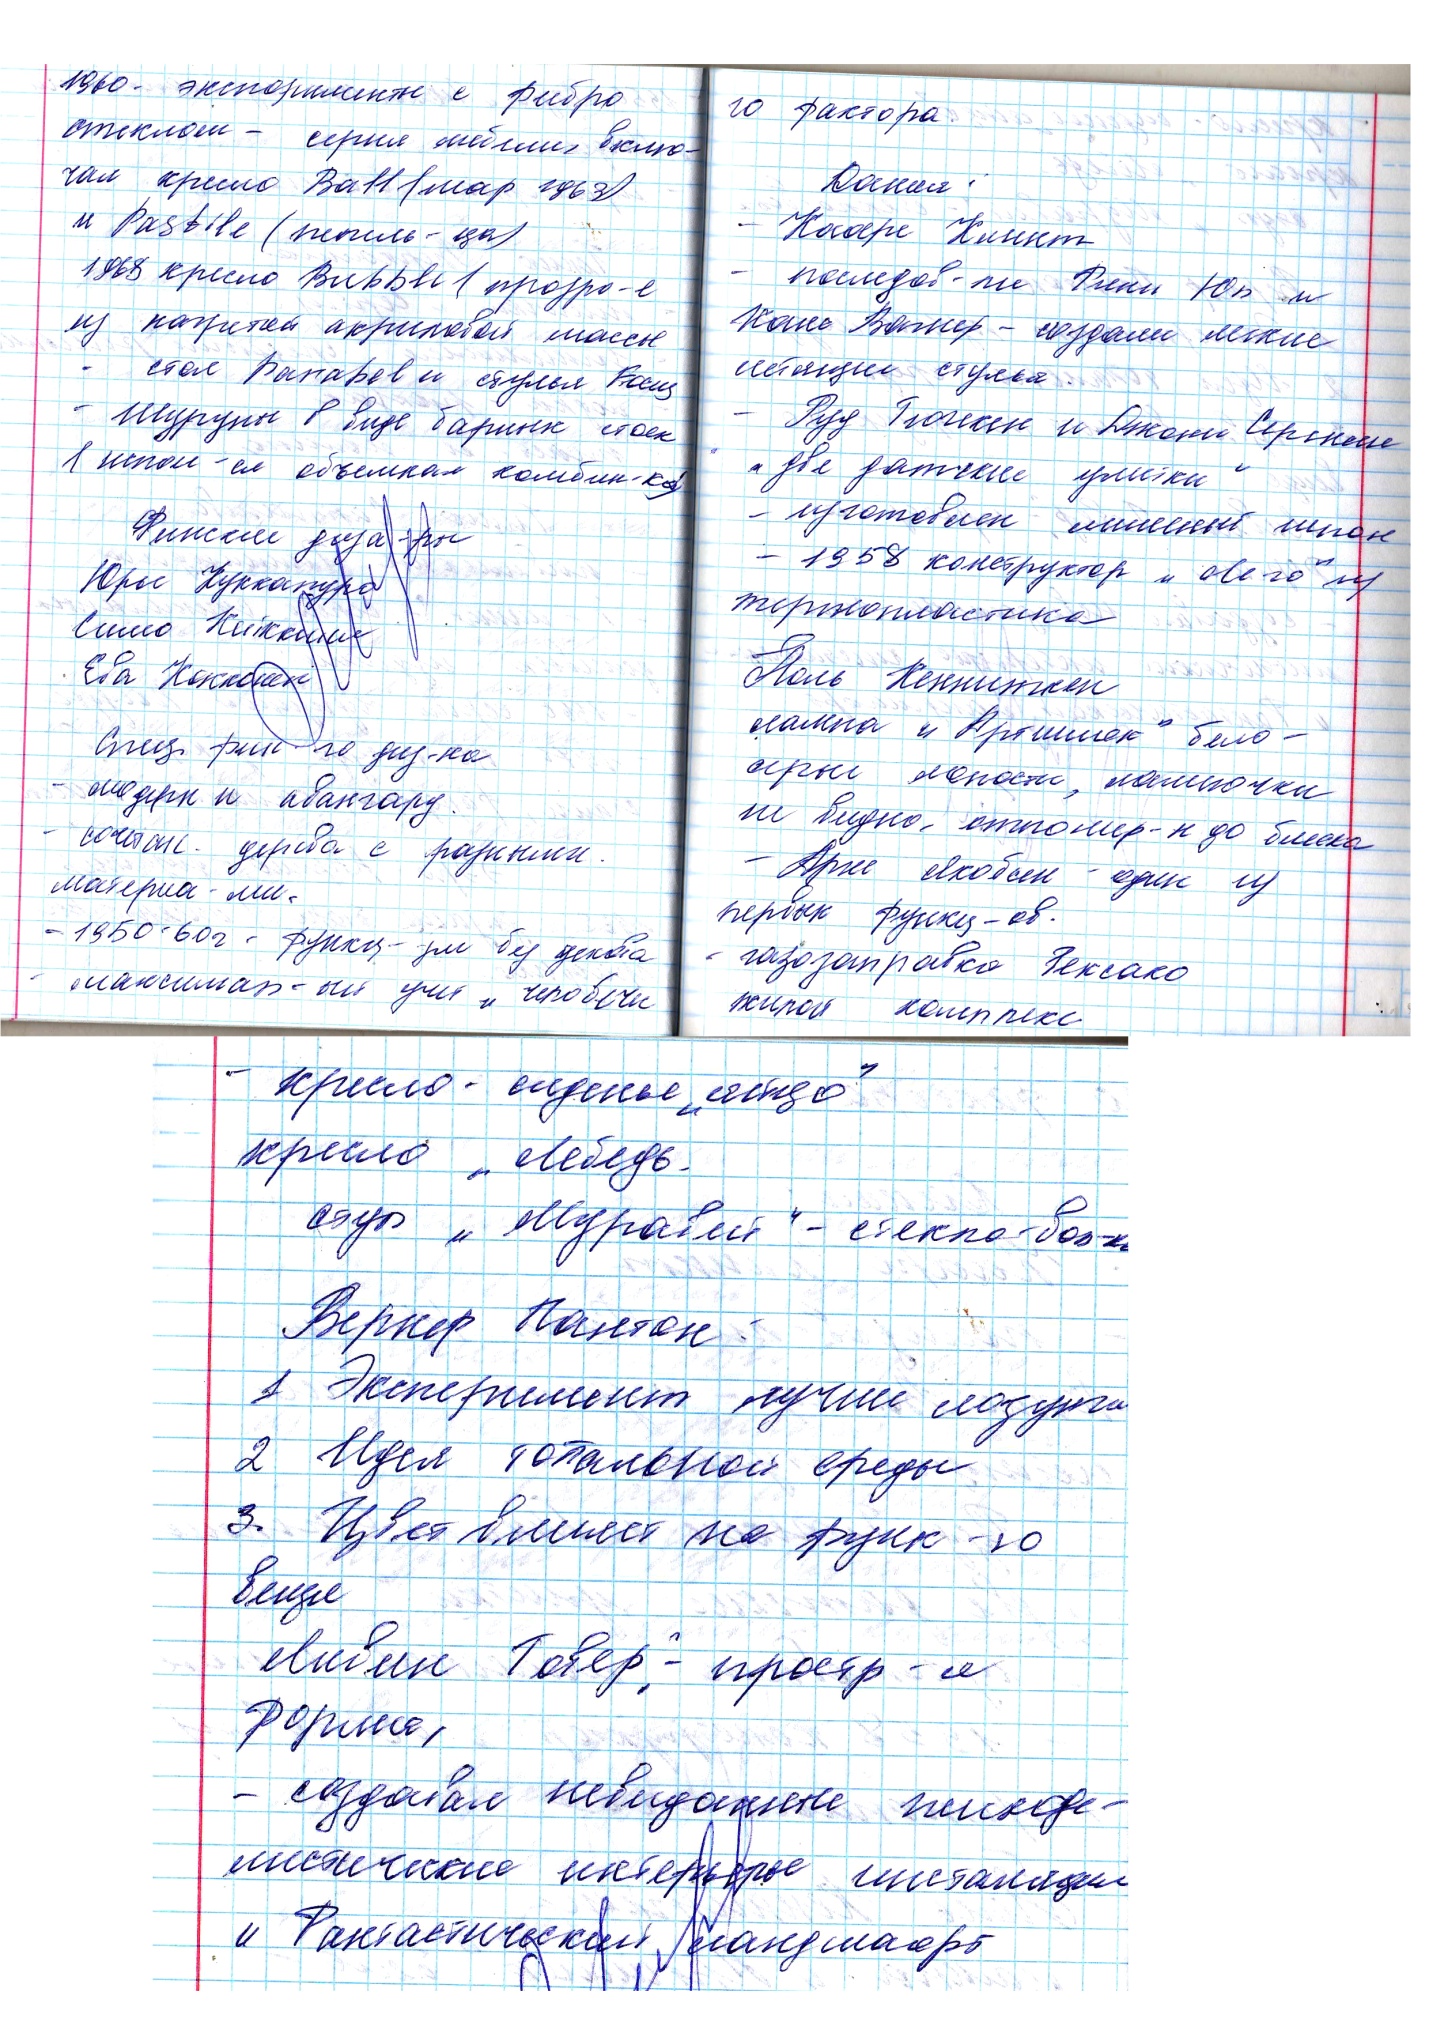 1960- эксперименты с фибро
стеклом - серия мебели, вклю-
чая кресло Ball (шар 1963)
и Pastile (пепель-ца)
1968 кресло Bubble (прозра-е
из нагретой акриловой массы
- стол Parabel и стулья
- Шурупы в виде барных стоек
(испол-ся объемная комбин-ка)
Финские диза-ры
Юрье Куккапура
Симо Хейккиля
Ева Кокконен
Спец. фин-го диз-на
- модерн и авангард.
- сочетан. дерева с разными.
материа-ми.
- 1950-60г. функц-зм без декора
- максимал-ый учет „ человечи
го фактора
Дания:
- Кааре Клинт
- последов-ли Финн Юл и
Ханс Вагнер - создали легкие
летящие стулья.
- Руд Тюгесен и Джони Серенсен
„ две датские улитки"
- изготовлен, лишенный шпон
- 1958 конструктор „ Лего" из
термопластика
Поль Хеннингсен
лампа „ Артишок" бело-
серые лопасти, лампочки
не видно, отполир-н до блеска
- Арне Якобсен - один из
первых функц-ов.
- газозаправка Тексако
жилой комплекс
- кресло - сиденье „яйцо"
кресло „ Лебедь.
стул „ Муравей" - стекло-вол-н
Вернер Пантон:
1 Эксперимент лучше лозунга
2 Идея тотальной среды
3. Цвет влияет на функ-ю
вещи
Ливин Товер" - простр-я
форма,
- создавал невиданные психоде-
листические интерьеры инсталяции
и Фантастический ландмаорт